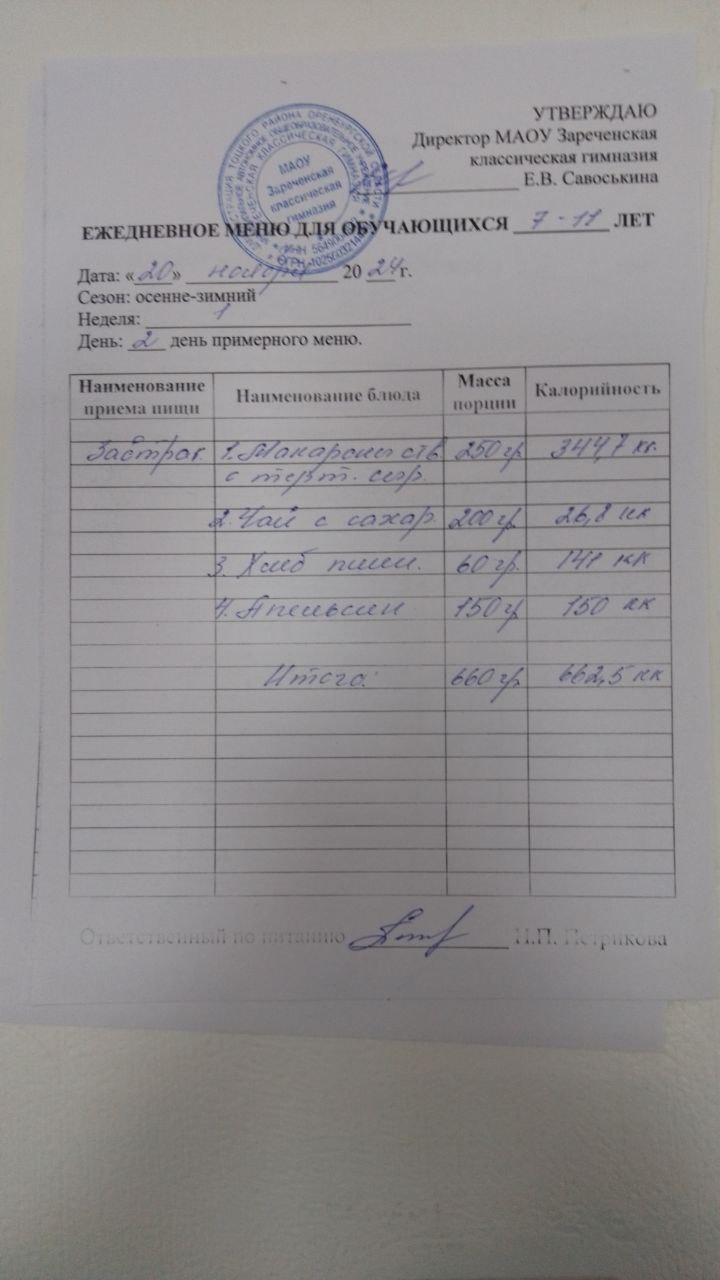 УТВЕРЖДАЮ
Директор МАОУ Зареченская
классическая гимназия
Е.В. Савоськина
МАОУ
Зареченская
классическая
гимназия
ЕЖЕДНЕВНОЕ МЕНЮ ДЛЯ ОБУЧАЮЩИХСЯ 7-11 ЛЕТ
Дата: «20» ноября 2024г.
Сезон: осенне-зимний
Неделя: 1
День: 2 день примерного меню.
Наименование приема пищи Наименование блюда Масса порции Калорийность
Завтрак 1. Макароны отв. 250 гр 344,7 кк.
с терт. сыр.
2. Чай с сахар. 200 гр 26,8 кк
3. Хлеб пшен. 60 гр. 141 кк
4. Апельсин 150 гр 150 кк
Итого: 660 гр. 662,5 кк
Ответственный по питанию Н.П. Петрикова